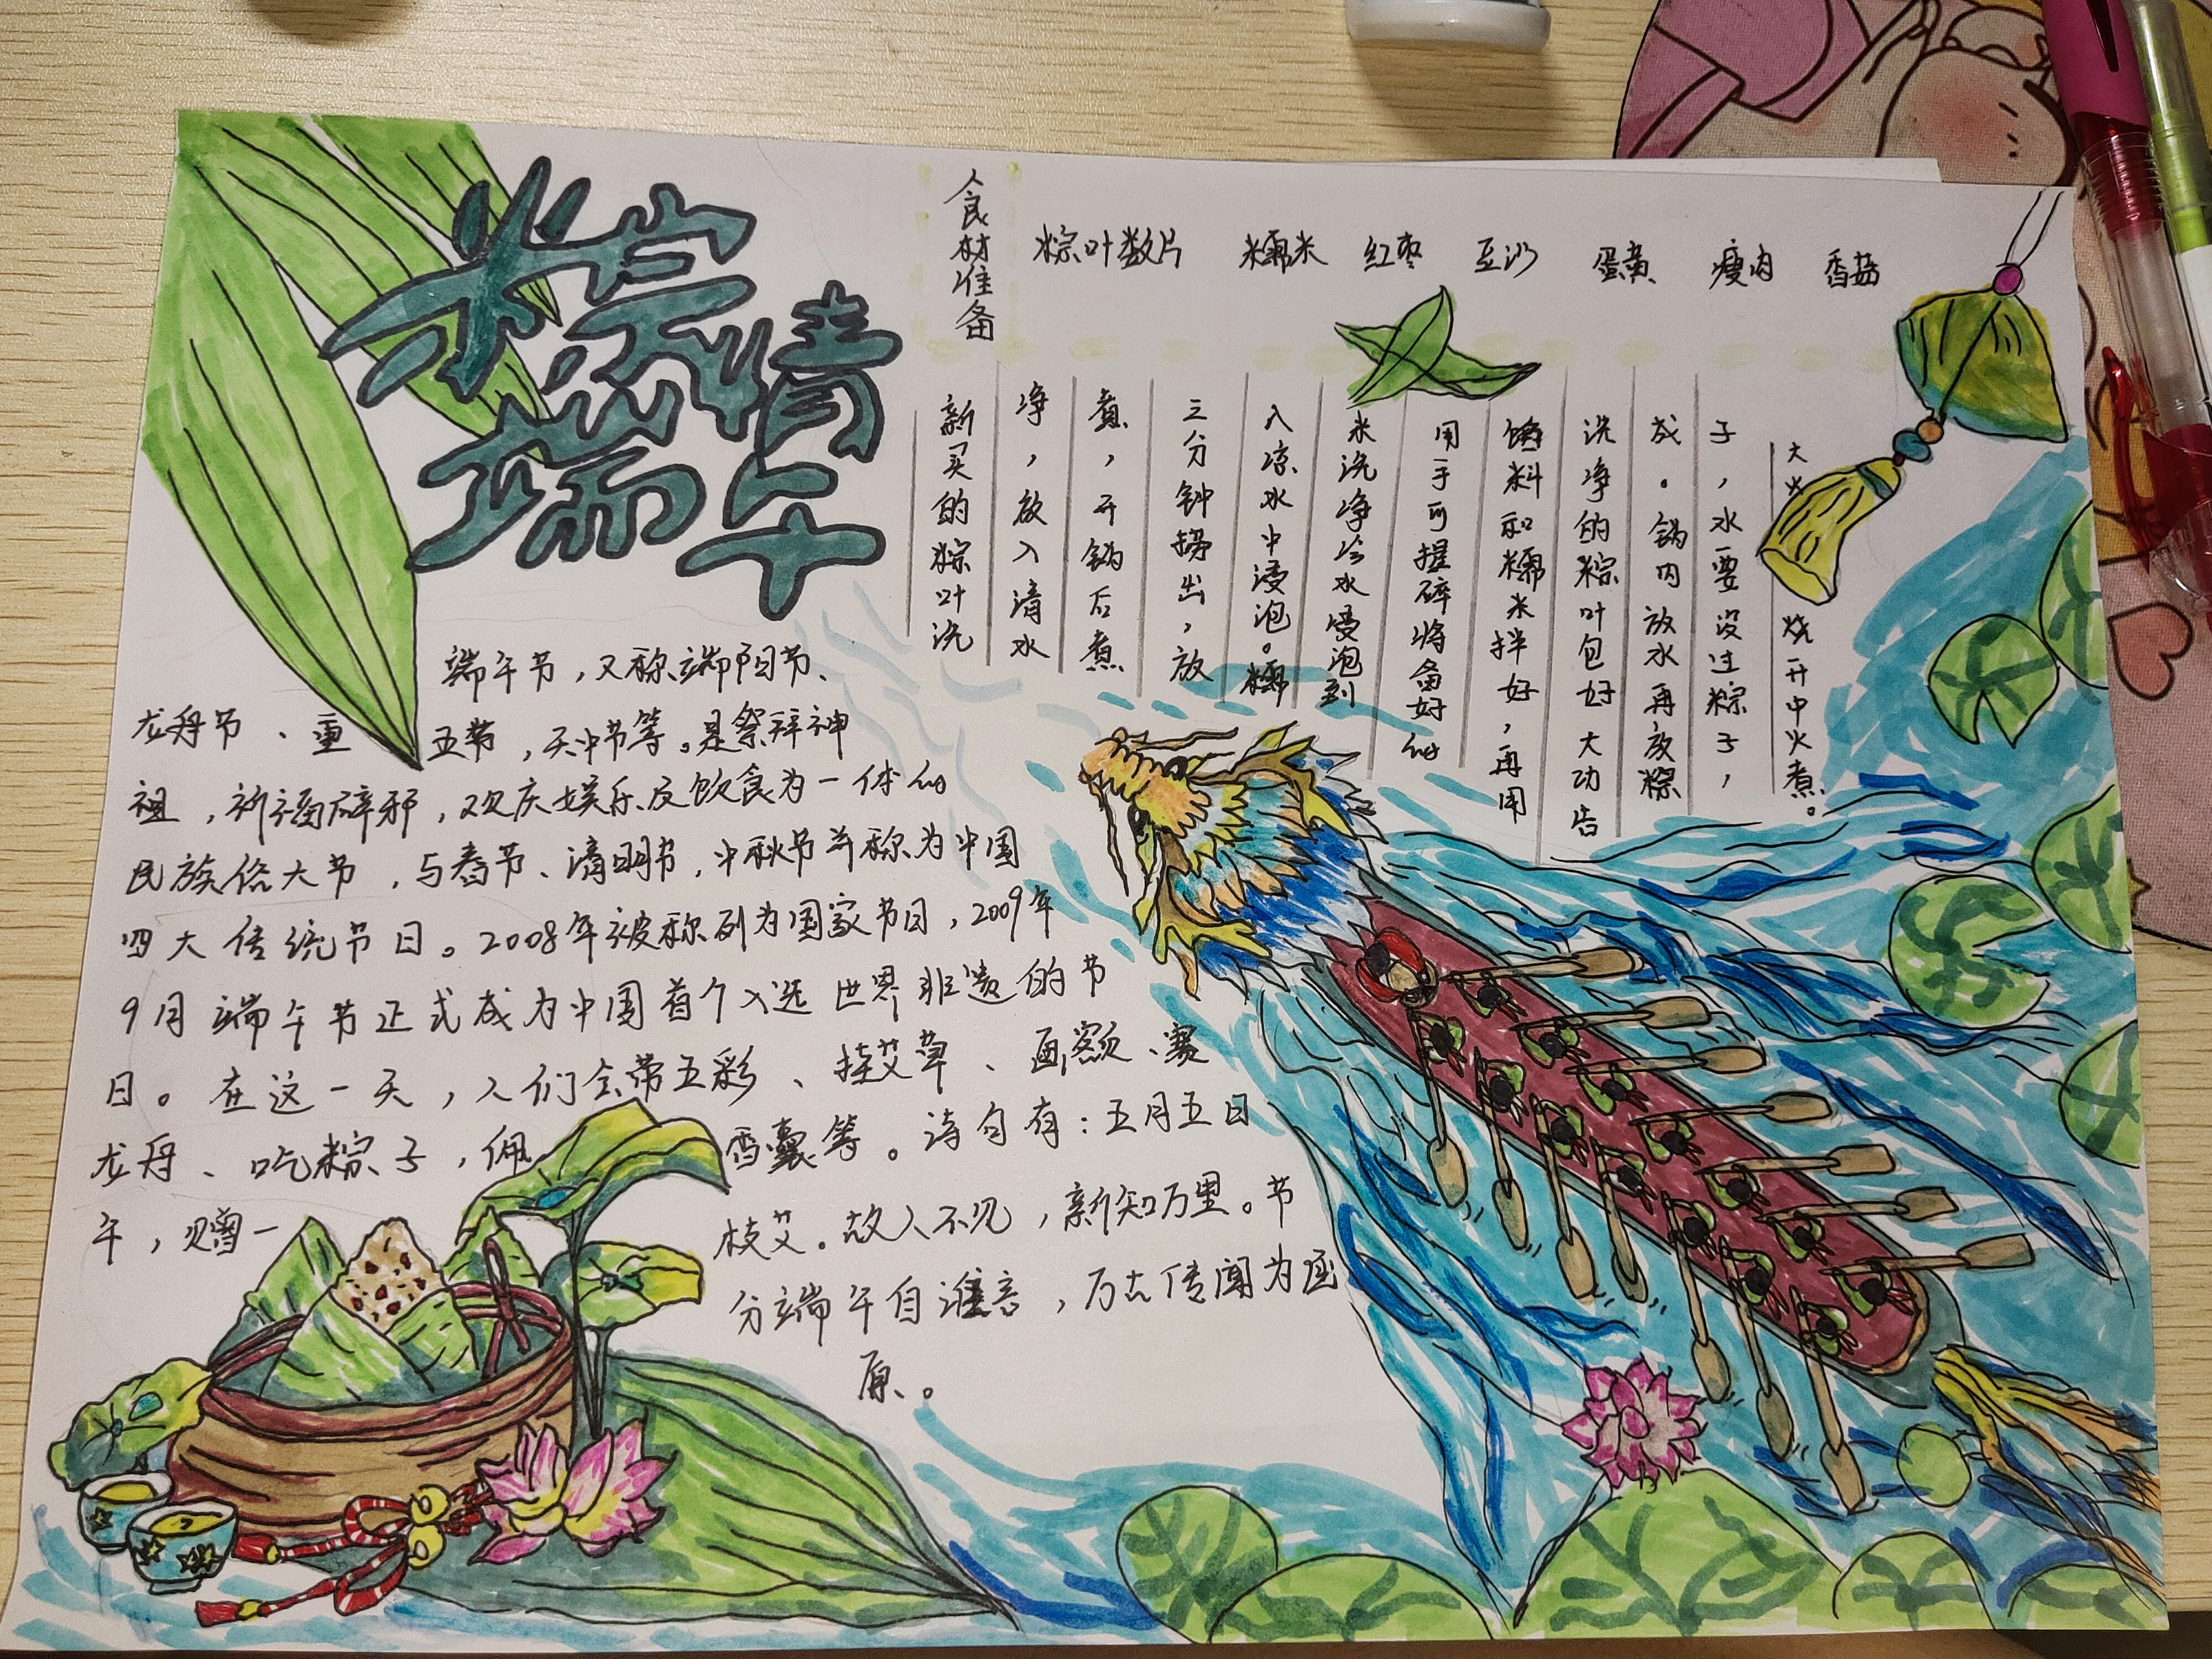 粽情
端午
食材准备
粽叶数片 糯米 红枣 豆沙 蛋黄 瘦肉 香菇
新买的粽叶洗
净，放入清水
煮，开锅后煮
三分钟捞出，放
入凉水中浸泡。糯
米洗净冷水浸泡到
用手可握碎将备好的
馅料和糯米拌好，再用
洗净的粽叶包好大功告
成。锅内放水再放粽
子，水要没过粽子，
大火烧开中火煮。
端午节，又称端阳节、
龙舟节、重五节，天中节等。是祭拜神
祖，祈福辟邪，欢庆娱乐及饮食为一体的
民族俗大节，与春节、清明节，中秋节并称为中国
四大传统节日。2008年被称列为国家节日，2009年
9月端午节正式成为中国首个入选世界非遗的节
日。在这一天，人们会带五彩、挂艾草、画额、赛
龙舟、吃粽子，佩香囊等。诗句有：五月五日
午，赠一枝艾。故人不见，新知万里。节
分端午自谁言，万古传闻为屈
原。